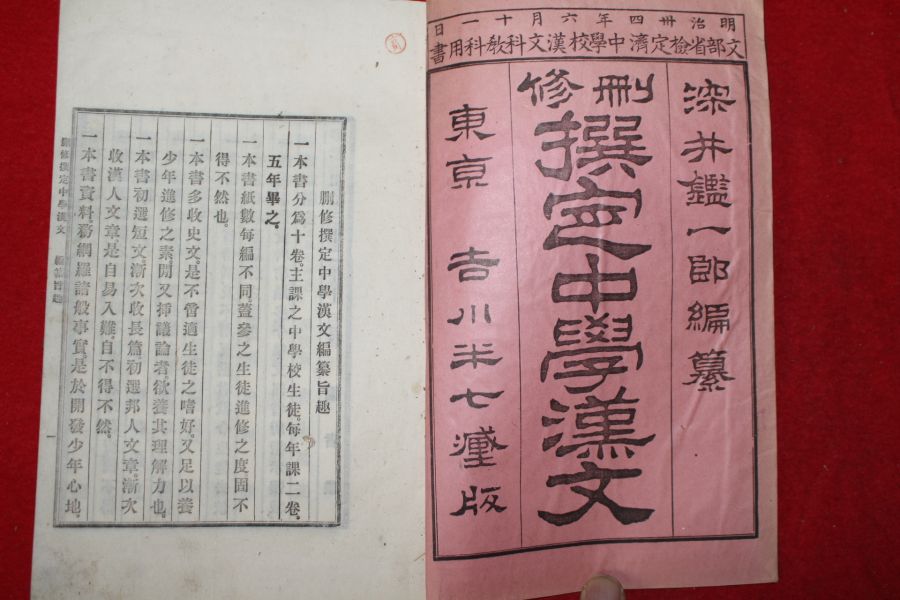 明治卅四年六月十一日
文部省檢定濟中學校漢文科敎科用書
深井鑑一郎編纂
刪修
撰定中學漢文
東京　吉川半七藏版
刪修撰定中學漢文編纂旨趣
一本書分爲十卷。主課之中學校生徒。每年課二卷。
五年畢之。
一本書紙數每編不同蓋參之生徒進修之度固不
得不然也。
一本書多收史文。是不啻適生徒之嗜好。又足以養
少年進修之素。間又揷議論者欲養其理解力也。
一本書初選短文。漸次收長篇初選邦人文章。漸次
收漢人文章是自易入難。自不得不然。
一本書資料。務網羅諸般事實。是於開發少年心地。
刪修撰定中學漢文　編纂旨趣